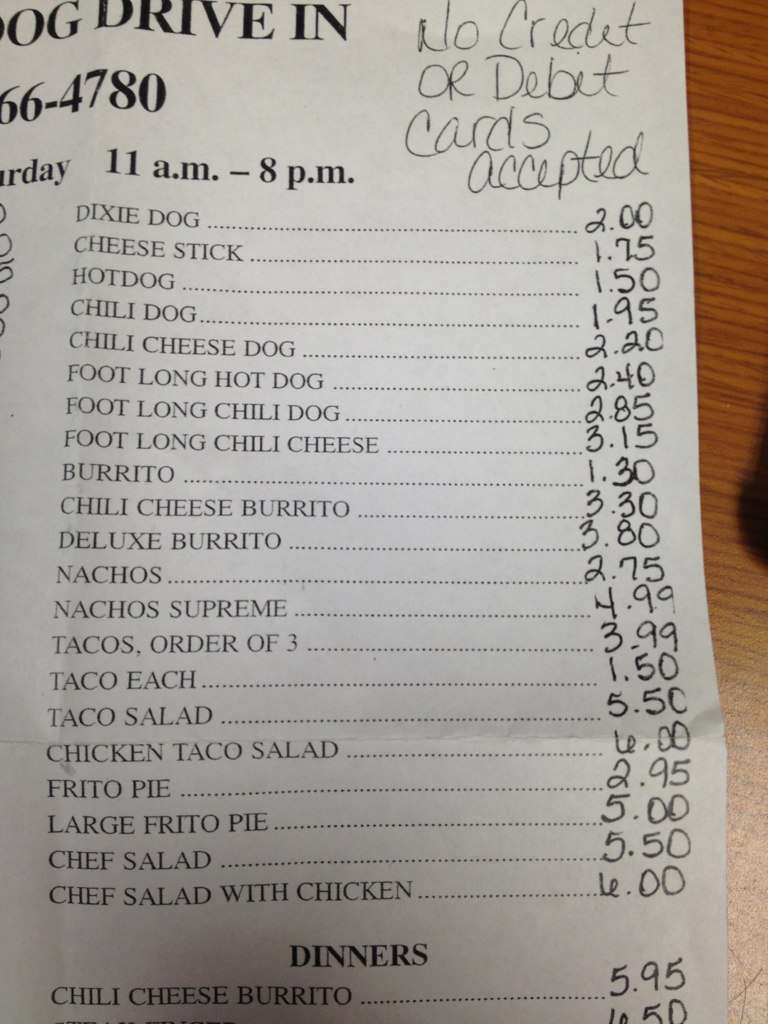 OG DRIVE IN
66-4780
No Credit
OR Debit
Cards
accepted
urday 11 a.m. – 8 p.m.
DIXIE DOG 2.00
CHEESE STICK 1.75
HOTDOG 1.50
CHILI DOG 1.95
CHILI CHEESE DOG 2.20
FOOT LONG HOT DOG 2.40
FOOT LONG CHILI DOG 2.85
FOOT LONG CHILI CHEESE 3.15
BURRITO 1.30
CHILI CHEESE BURRITO 3.30
DELUXE BURRITO 3.80
NACHOS 2.75
NACHOS SUPREME 4.99
TACOS, ORDER OF 3 3.99
TACO EACH 1.50
TACO SALAD 5.50
CHICKEN TACO SALAD 6.00
FRITO PIE 2.95
LARGE FRITO PIE 5.00
CHEF SALAD 5.50
CHEF SALAD WITH CHICKEN 6.00
DINNERS
CHILI CHEESE BURRITO 5.95
6.50